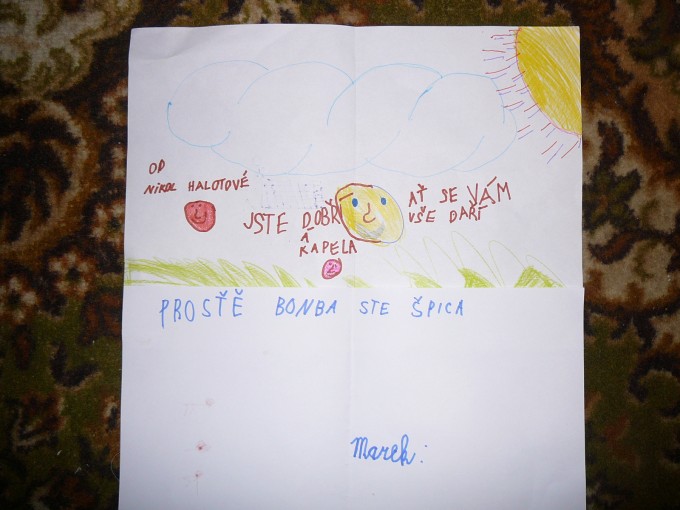 OD
NIKOL HALOTOVÉ
JSTE DOBŘ
Á
KAPELA
AŤ SE VÁM
VŠE DAŘÍ
PROSŤĚ BONBA STE ŠPICA
Marek: